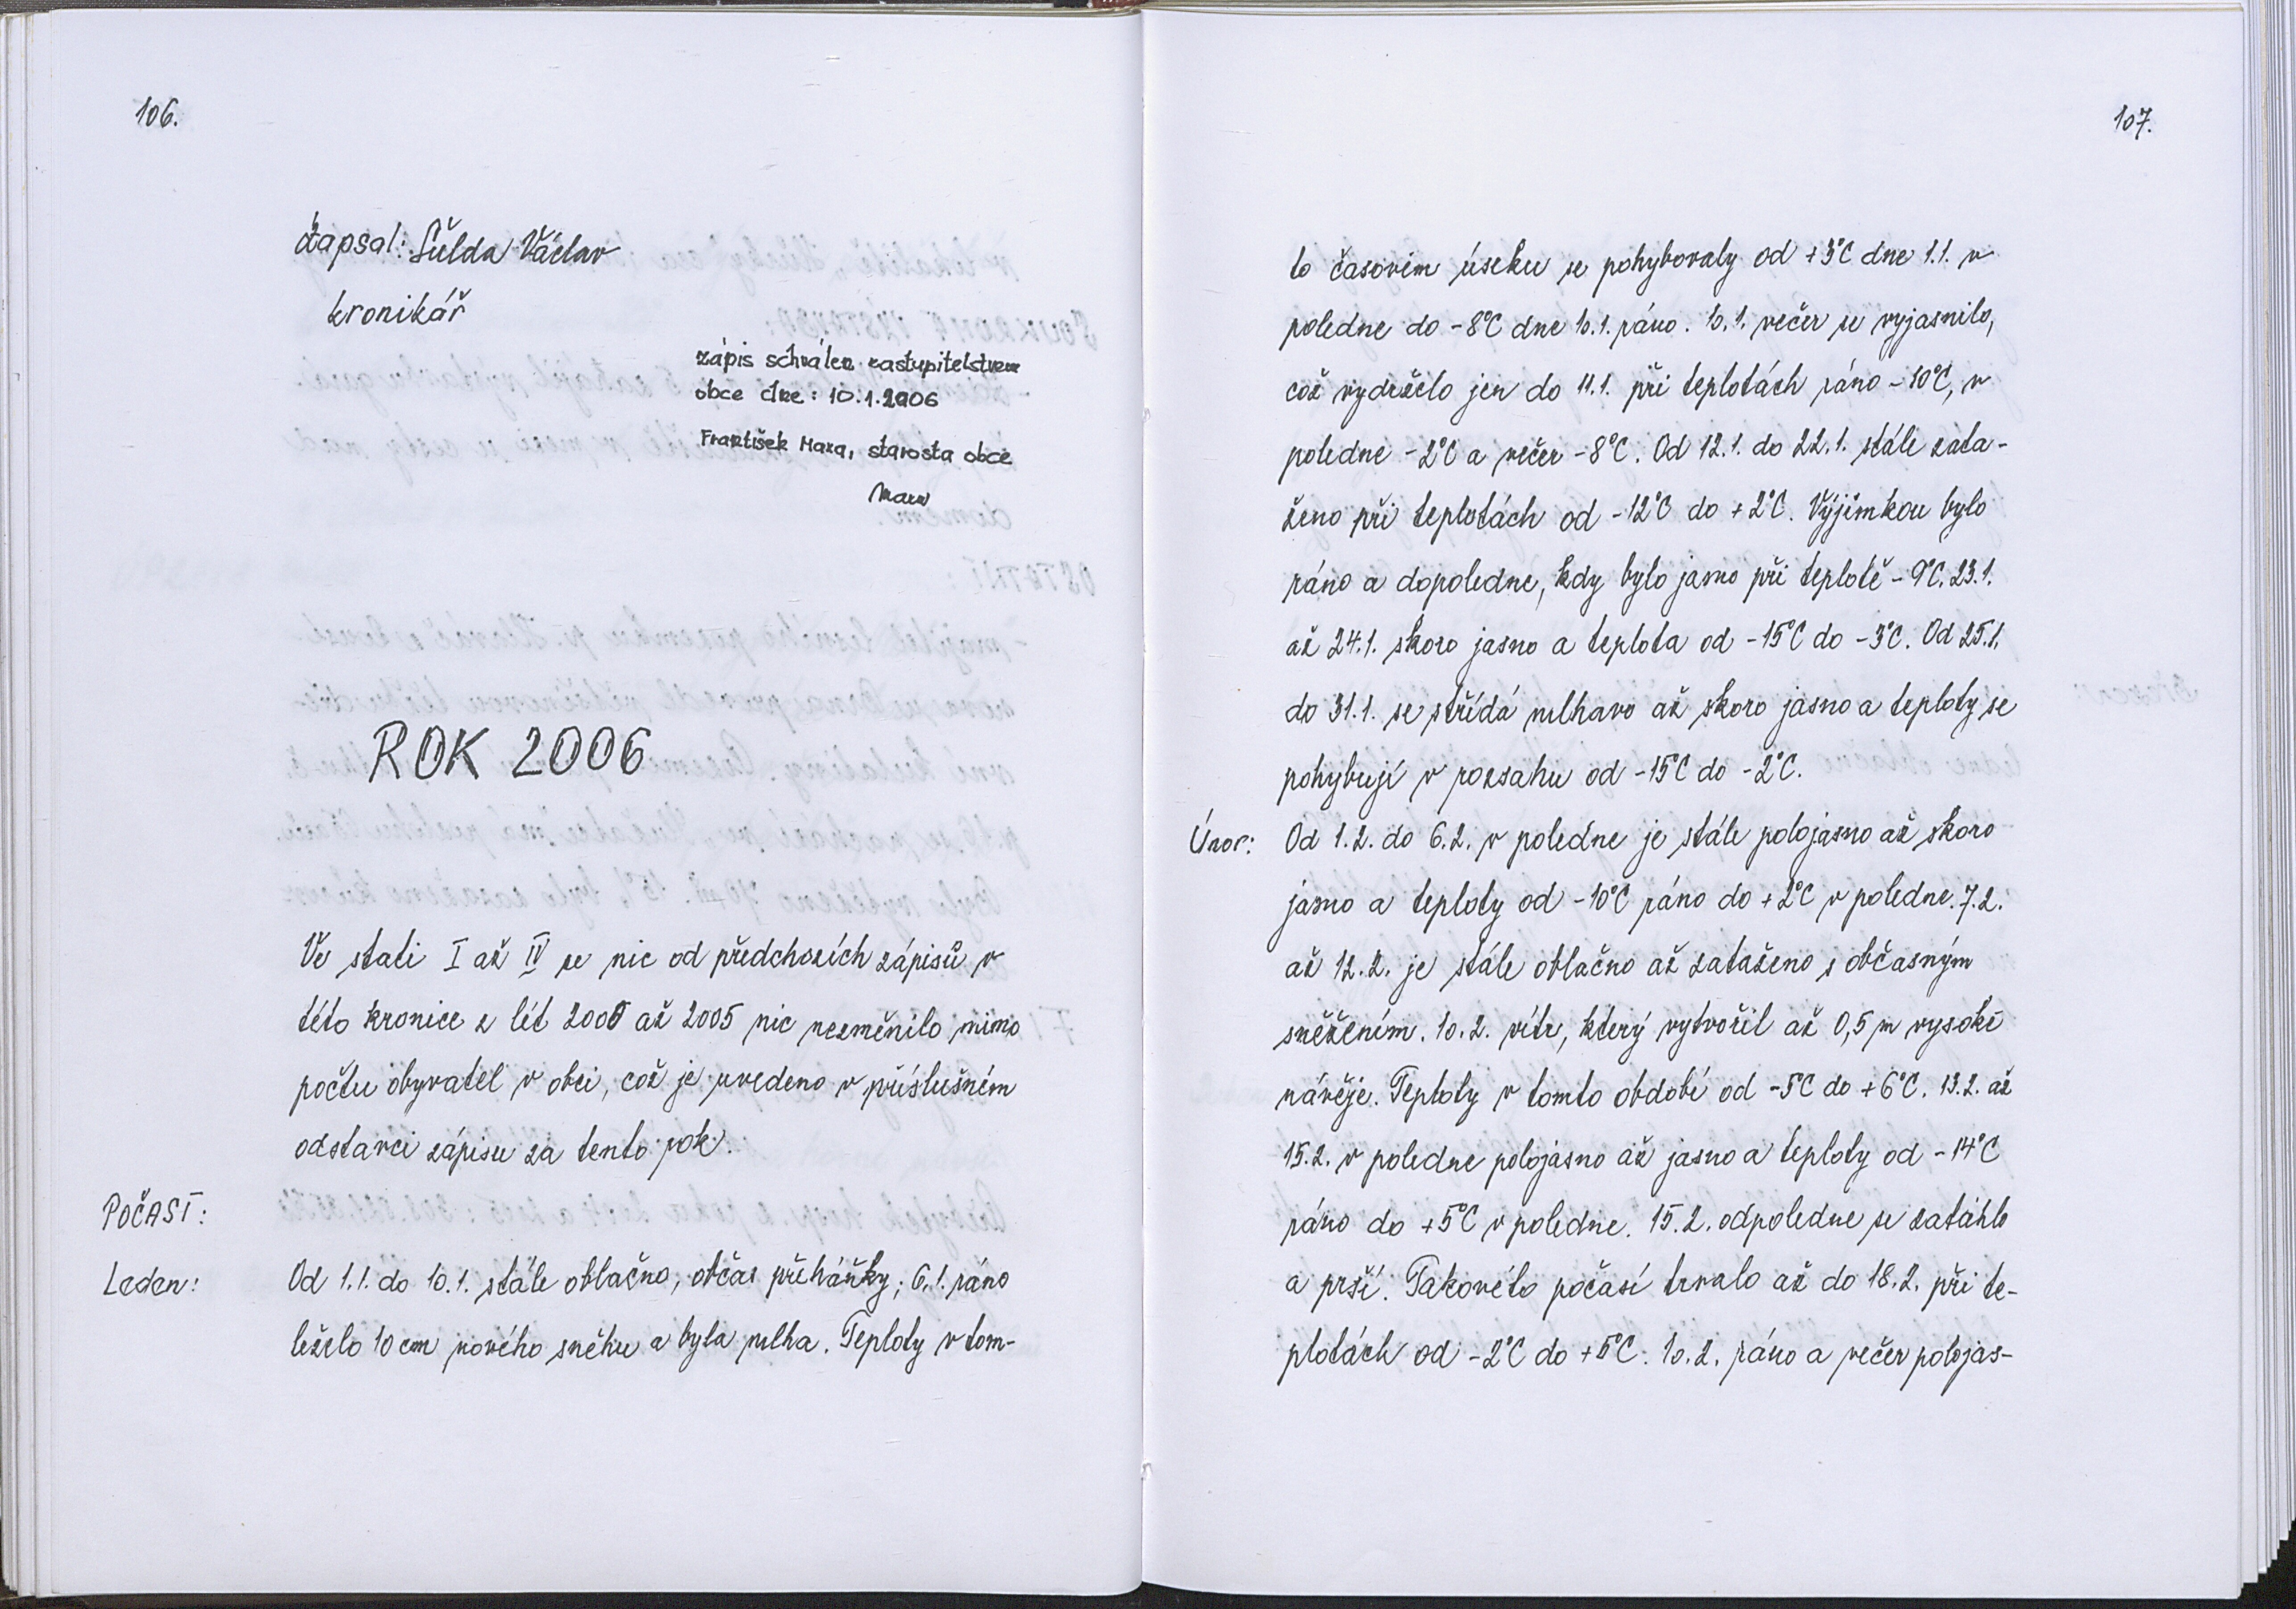 106.
Zapsal: Šulda Václav
kronikář
zápis schválen zastupitelstvem
obce dne: 10.1.2006
František Maxa, starosta obce
ROK 2006
Ve stati I až IV se nic od předchozích zápisů v
této kronice z lét 2000 až 2005 nic nezměnilo mimo
počtu obyvatel v obci, což je uvedeno v příslušném
odstavci zápisu za tento rok.
POČASÍ:
Leden: Od 1.1. do 10.1. stále oblačno, občas přeháňky; 6.1. ráno
leželo 10 cm nového sněhu a byla mlha. Teploty v tom-
107.
to časovém úseku se pohybovaly od +3°C dne 1.1. v
poledne do -8°C dne 10.1. ráno. 10.1. večer se vyjasnilo,
což vydrželo jen do 11.1. při teplotách ráno -10°C, v
poledne -2°C a večer -8°C. Od 12.1. do 22.1. stále zata-
ženo při teplotách od -12°C do +2°C. Výjimkou bylo
ráno a dopoledne, kdy bylo jasno při teplotě -9°C. 23.1.
až 24.1. skoro jasno a teplota od -15°C do -3°C. Od 25.1.
do 31.1. se střídá mlhavo až skoro jasno a teploty se
pohybují v rozsahu od -15°C do -2°C.
Únor: Od 1.2. do 6.2. v poledne je stále polojasno až skoro
jasno a teploty od -10°C ráno do +2°C v poledne. 7.2.
až 12.2. je stále oblačno až zataženo s občasným
sněžením. 10.2. vítr, který vytvořil až 0,5 m vysoké
návěje. Teploty v tomto období od -5°C do +6°C. 13.2. až
15.2. v poledne polojasno až jasno a teploty od -14°C
ráno do +5°C v poledne. 15.2. odpoledne se zatáhlo
a prší. Takovéto počasí trvalo až do 18.2. při te-
plotách od -2°C do +5°C. 10.2. ráno a večer polojas-